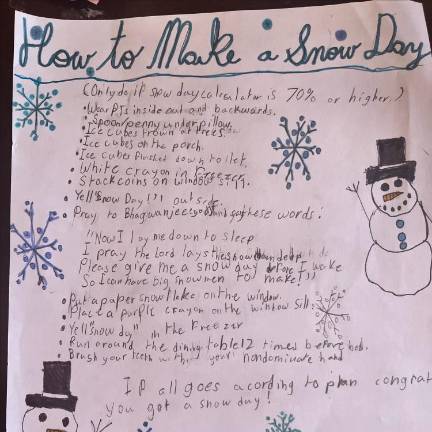 How to Make a Snow Day
(Only do if snow day calculator is 70% or higher.)
• Wear PJs inside out and backwards.
• Spoon/penny under pillow.
• Ice cubes trown at trees.
• Ice cubes on the porch.
• Ice cubes flushed down toilet.
• White crayon in freezer
• Stack coins on window sill.
• Yell "Snow Day!" outside.
• Pray to Bhagwanjee and say these words:
"Now I lay me down to sleep
I pray the Lord lays the snow deep
Please give me a snow day before I wake
So I can have big snowmen to make!!"
• Put a paper snowflake on the window.
• Place a purple crayon on the window sill.
• Yell "snow day" in the freezer
• Run around the dining table 12 times before bed.
• Brush your teeth with your nondominate hand
If all goes acording to plan congrat
you got a snow day!